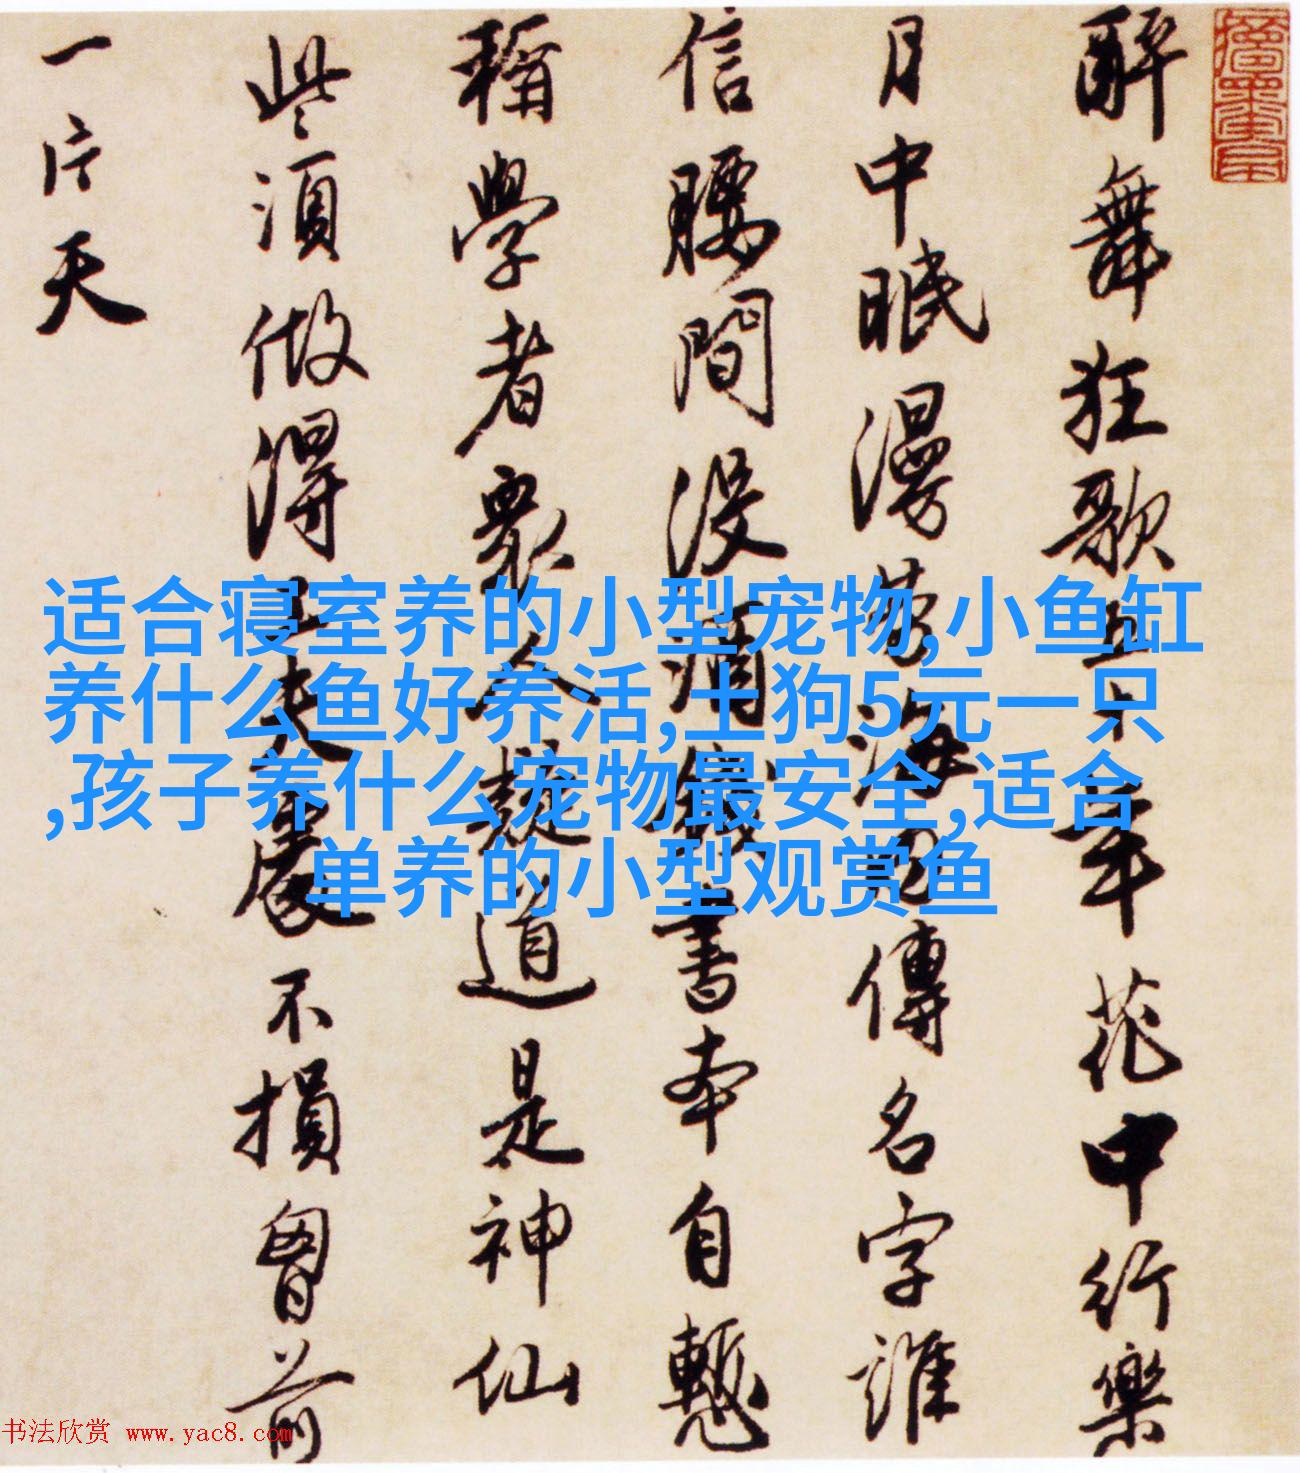 醉舞狂歌五十年花中行樂
月中眠漫勞海内傳名字誰
信腰間沒酒錢書本自慙
稱學者衆人疑道是神仙
些須做得工夫處不損胷前
一片天
适合寝室养的小型宠物,小鱼缸
养什么鱼好养活,土狗5元一只
,孩子养什么宠物最安全,适合
单养的小型观赏鱼
书法欣赏 www.yac8.com